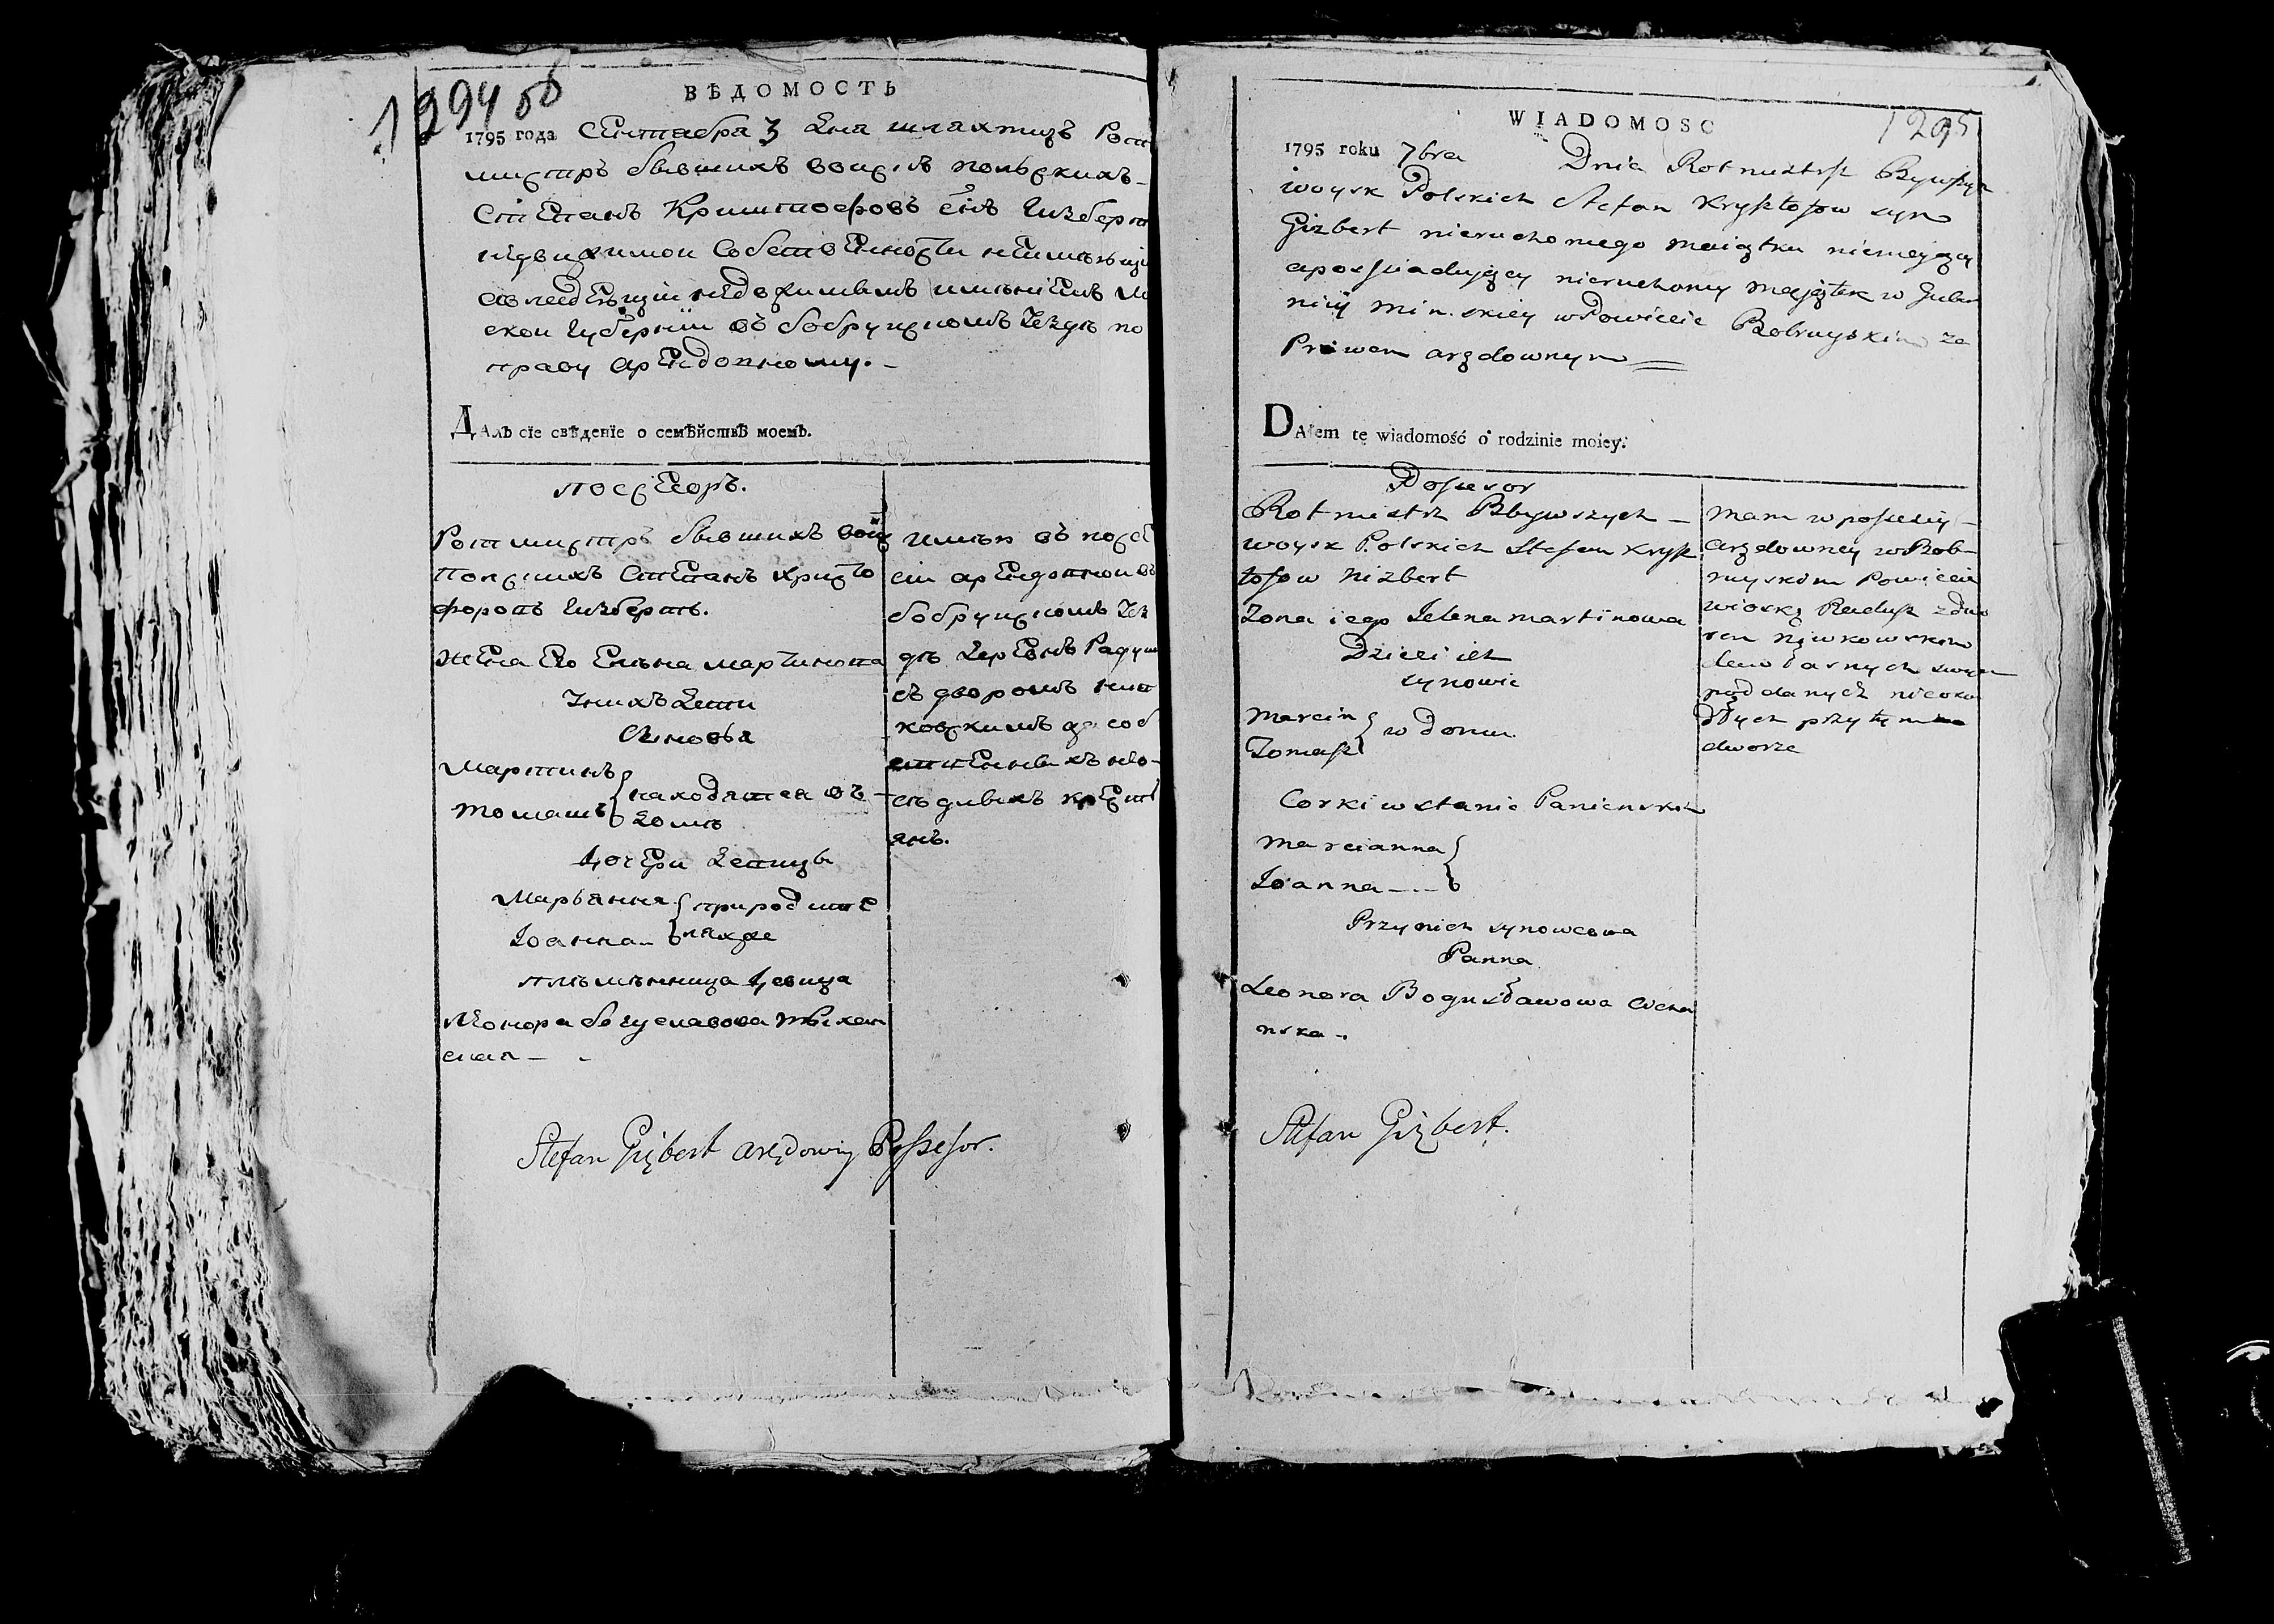 1294 об
ВѢДОМОСТЬ
1795 года Сентебра 3 дня шляхтичъ Рот
мистръ бывшихъ воискъ польскихъ
Степанъ Криштофовъ снъ Гизберт
недвижимои собственности неимеющи
авледеющи недвижимымъ имениемъ М
скои Губернии въ бобруискомъ уезде по
праву арендовному.
ДАлъ сїе свѣденїе о семѣйствѣ моемъ.
посесоръ.
Ротмистръ бывшихъ воис
Полскихъ Степанъ христо
форовъ Гизбертъ.
жена его Елена мартинова
Унихъ дети
Сыновья
Мартинъ
Томашъ
находятся въ
доме
дочери девицы
Марьянна
Іоанна
при родите
ляхже
племенница девица
Леонора богуславова
имею въ посе
сіи арендовнои въ
бобруискомъ уез
де деревню Радуш
съ дворомъ нив
ковскимъ
ственныхъ
крест
янъ.
Stefan Gizbert arędowny Possesor.
WIADOMOSC
1295
1795 roku 7bra Dnia Rotmistrz Bywszych
woysk Polskich Stefan Krysztofow syn
Gizbert nieruchomego maiątku niemejący
aposiadujący nieruchomy majątek w Guber
nij Min.skiey w Powiecie Bobruyskim za
Prawem arędownym
DAłem tę wiadomość o rodzinie moiey:
Possesor
Rotmistrz Bbywszych
woysk Polskich Stefan Krysz
tofow Hizbert
Zona iego Jelena martinowa
Dzieci ich
synowie
Marcin
Tomasz
w domu
Corki w stanie Panienskim
Marcianna
Joanna
Przy nich synowcowa
Panna
Leonora Bogusławowa Cicha
nska.
Mam w possesiy
arędowney w Bob
ruyskim Powiecie
wioskę Radusz z dwo
rem Niwkowskim
poddanych
przy tym
dworze
Stefan Gizbert.